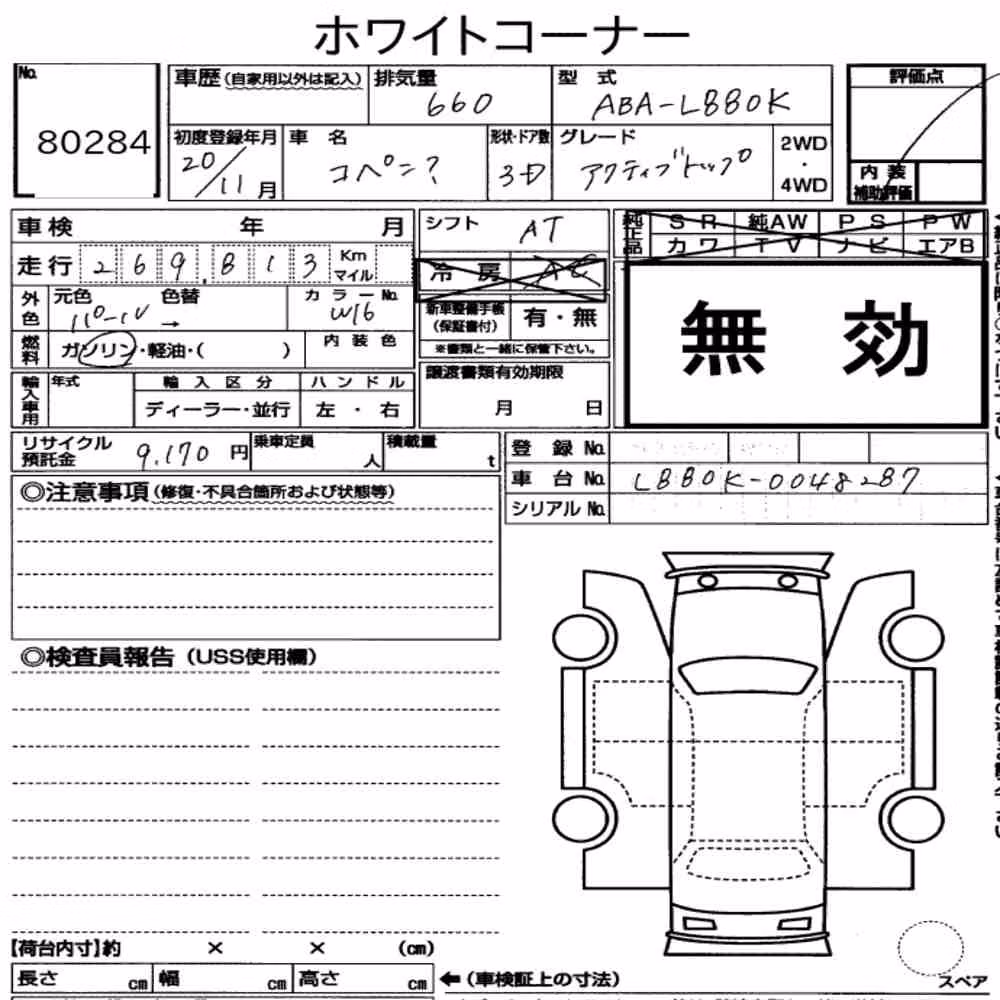 ホワイトコーナー
No. 80284
車歴(自家用以外は記入) 排気量 660 型式 ABA-L880K
初度登録年月 20/11月 車名 コペン? 形状・ドア数 3D グレード アクティブトップ 2WD・4WD
評価点
内装補助評価
車検 年 月
シフト AT
純正品 SR 純AW PS PW
カワ TV ナビ エアB
走行 269,813 Km マイル
冷房 AC
無効
外色 元色 パール 色替 → カラーNo. W16
新車整備手帳(保証書付) 有・無
燃料 ガソリン・軽油・( ) 内装色
※書類と一緒に保管下さい。
輸入車用 年式 輸入区分 ハンドル
ディーラー・並行 左・右
譲渡書類有効期限
月 日
リサイクル預託金 9,170円 乗車定員 人 積載量 t
登録No.
車台No. L880K-0048287
シリアルNo.
◎注意事項(修復・不具合箇所および状態等)
◎検査員報告(USS使用欄)
【荷台内寸】約 × × (cm)
長さ cm 幅 cm 高さ cm
←(車検証上の寸法)
スペア